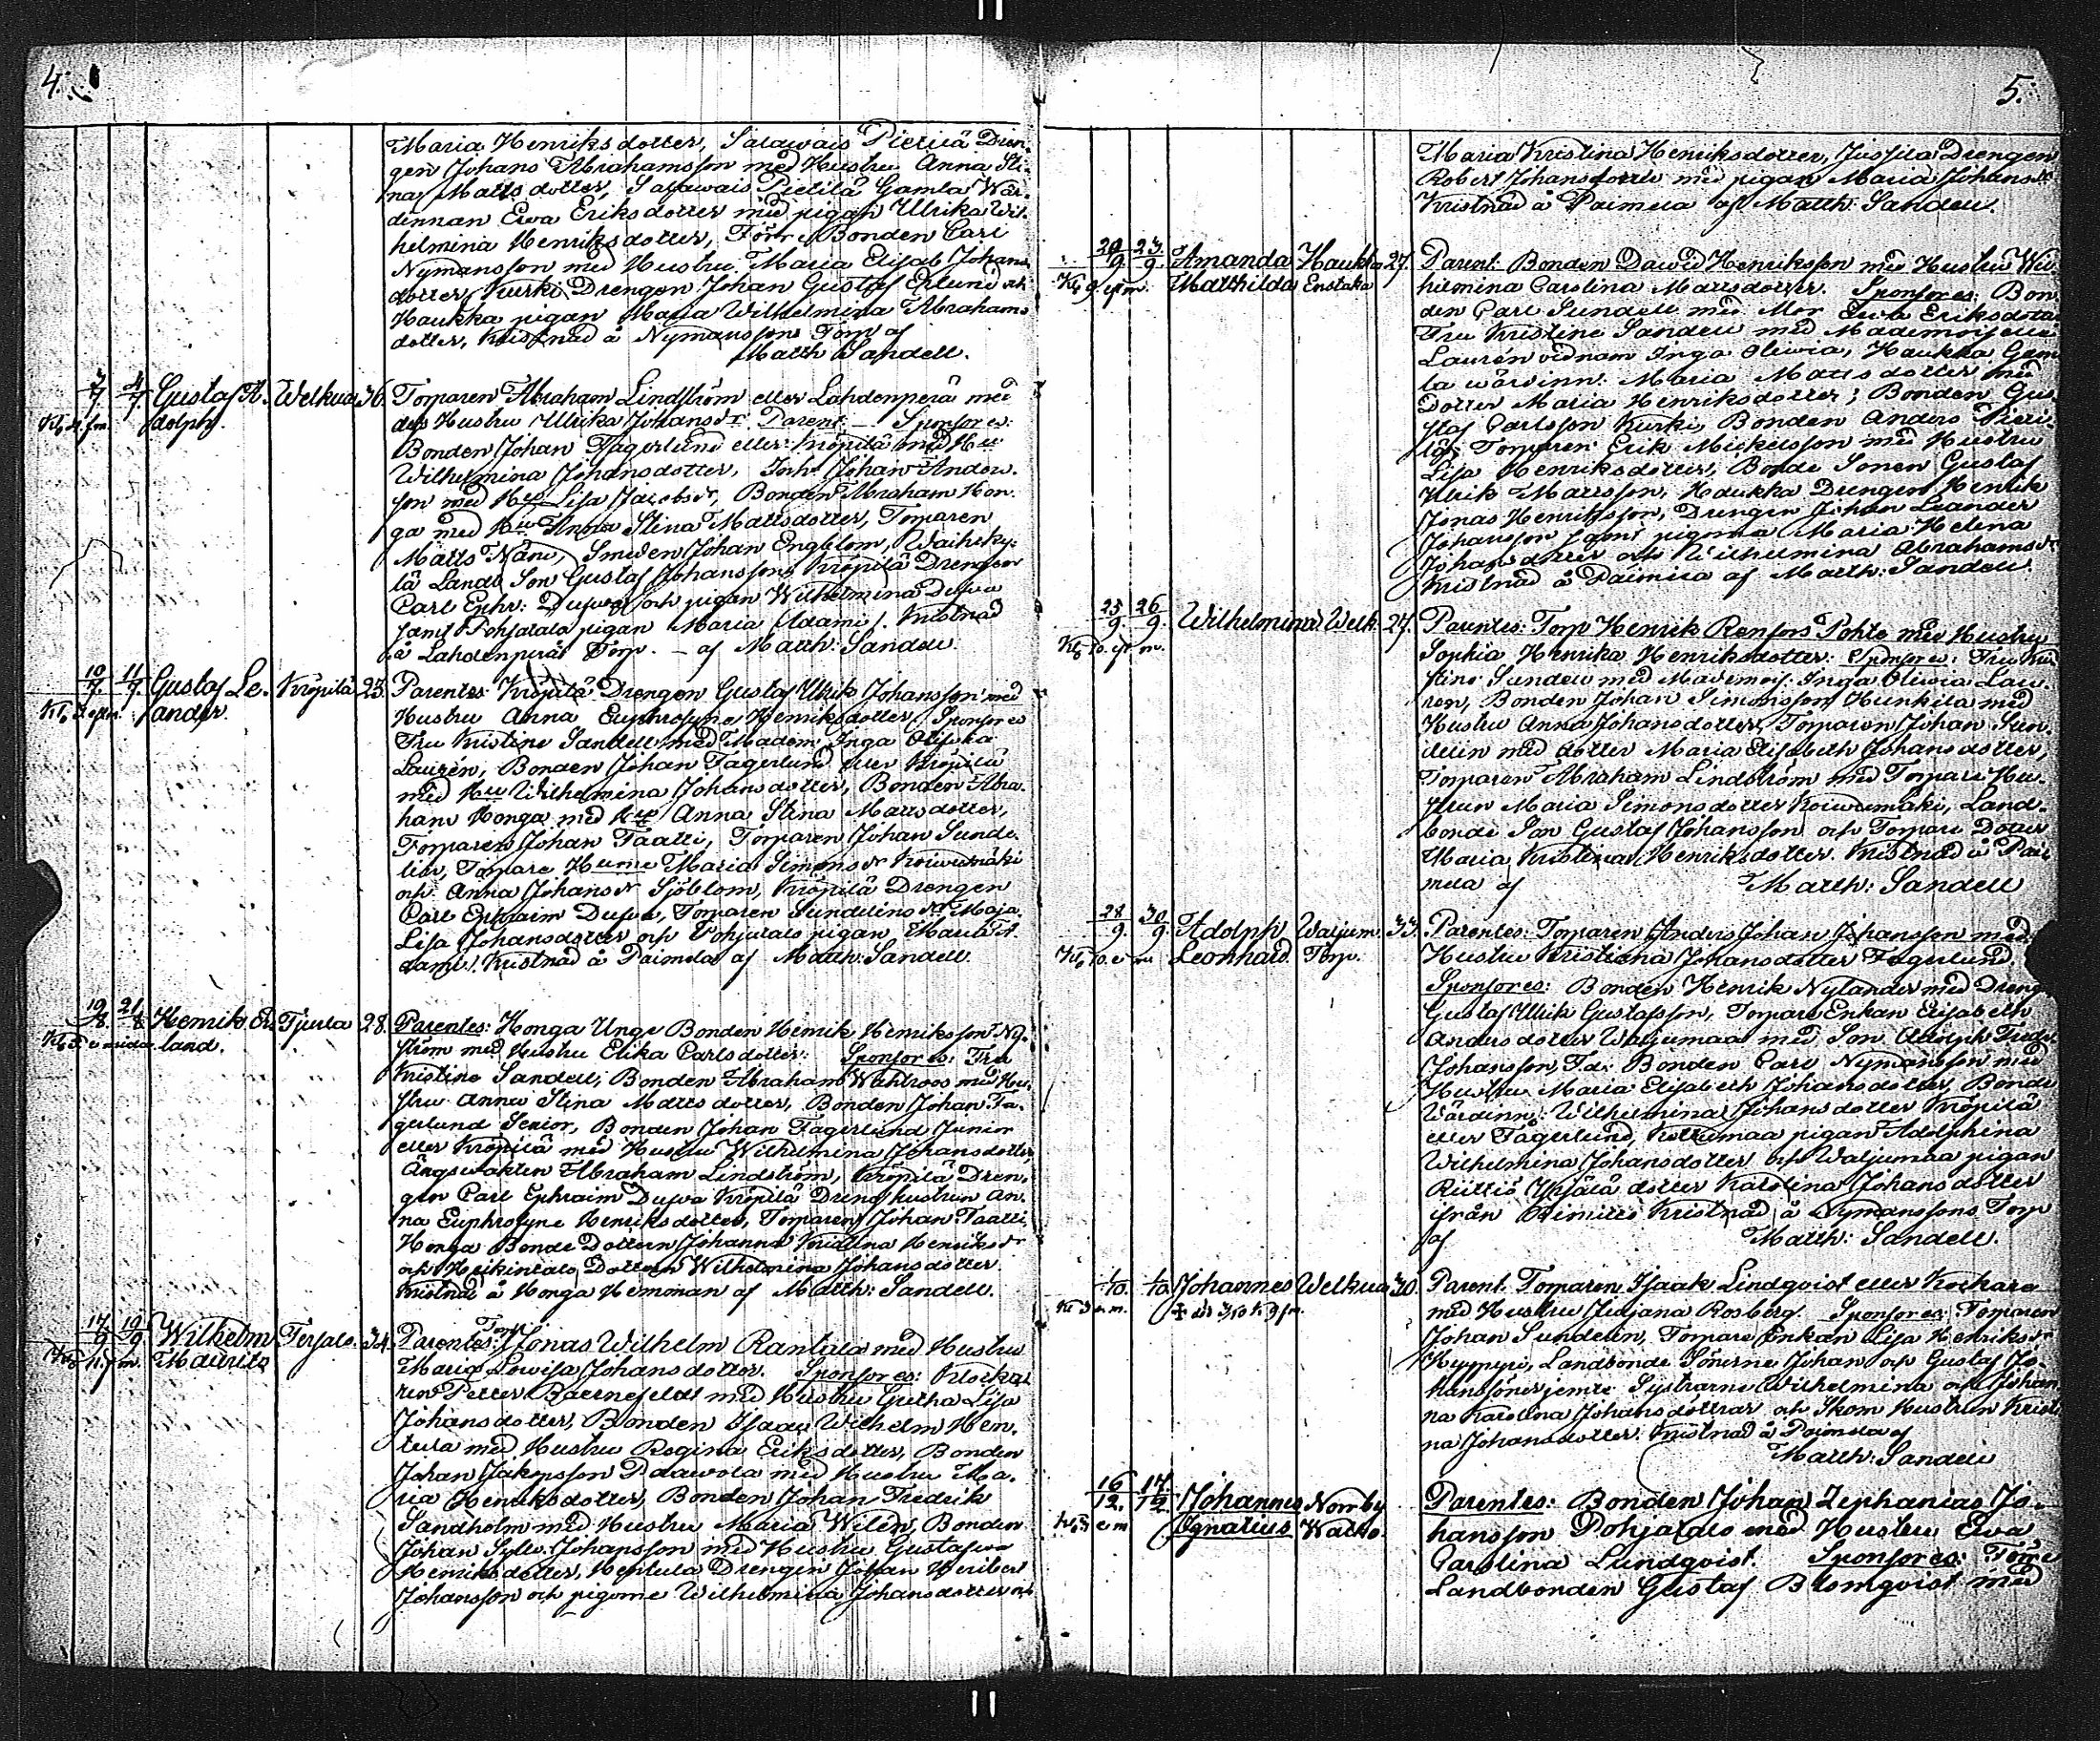 4.
Maria Henriksdotter, Salawais Pietilä Dren-
gen Johans Abrahamsson med Hustru Anna Sti-
na Mattsdotter, Salawais Pietilä Gamla Wär-
dinnan Ewa Eriksdotter med pigan Ulrika Wil-
helmina Henriksdotter, Förre Bonden Carl
Nymansson med Hustru Maria Elisab Johans
dotter, Kurki Drengen Johan Gustaf Eklund och
Haukka pigan Maria Wilhelmina Abrahams
dotter, Kristnad å Nymanssons Torp af
Matth Sandell.
4/7. Gustaf A- Welkua 36. Torparen Abraham Lindström eller Lahdenperä med
dolph. des Hustru Ulrika Johansdr. Parent. – Sponsores:
Bonden Johan Fagerlund eller Kröpilä med Hu
Wilhelmina Johansdotter, Inh: Johan Anders-
son med Hu Lisa Jacobsdr, Bonden Abraham Hon-
ga med Hu Anna Stina Mattsdotter, Torparen
Matts Nänu, Smeden Johan Engblom, Waiheky-
lä Landb Son Gustaf Johansson, Kröpilä Drengen
Carl Ephr: Dufva och pigan Wilhelmina Dufva
samt Pohjatalo pigan Maria Adami/. Kristnad
å Lahdenperä Torp. – af Matth: Sandell.
10/7. 11/7. Gustaf Le- Kröpilä 23. Parentes: Kröpilä Drengen Gustaf Ulrik Johansson med
ander. Hustru Anna Euphrosyne Henriksdotter, Sponsores
Fru Kristine Sandell med Madem: Inga Oliwia
Laurén, Bonden Johan Fagerlund eller Kröpilä
med Hu Wilhelmina Johansdotter, Bonden Abra-
ham Honga med Hu Anna Stina Mattsdotter,
Torparen Johan Taatti, Torparen Johan Sunde-
lin, Torpare Hustru Maria Simonsdr Koiwumäki
och Anna Johansdr Sjöblom, Kröpilä Drengen
Carl Ephraim Dufva, Torparen Sundelins dr Maja
Lisa Johansdotter och Pohjatalo pigan Maria A-
dami/. Kristnad å Paimela af Matth: Sandell.
19/8. 21/8. Henrik Er- Tjerla 28. Parentes: Honga Unge Bonden Henrik Henriksson Ny-
land. ström med Hustru Erika Carlsdotter: Sponsores: Fru
Kristine Sandell, Bonden Abraham Wahlroos med Hu-
stru Anna Stina Mattsdotter, Bonden Johan Fa-
gerlund Senior, Bonden Johan Fagerlund Junior
eller Kröpilä med Hustru Wilhelmina Johansdotter,
Ängswakten Abraham Lindström, Kröpilä Dren-
gen Carl Ephraim Dufva Kröpilä Dreng hustrun An-
na Euphrosyne Henriksdotter, Torparen Johan Taatti,
Honga Bonde Dottern Johanna Kristina Henriksdr
och Heikintalo Dottern Wilhelmina Johansdotter
Kristnad å Honga Hemman af Matth: Sandell.
17/9 19/9 Wilhelm Terjalo. 34. Parentes: Torp. Jonas Wilhelm Rantala med Hustru
Mauritz Maria Lowisa Johansdotter. Sponsores: Klocka-
ren Petter Baernefeldt med Hustru Gretha Lisa
Johansdotter, Bonden Isaac Wilhelm Hen-
tula med Hustru Regina Eriksdotter, Bonden
Johan Jakopsson Paawola med Hustru Ma-
ria Henriksdotter, Bonden Johan Fredrik
Sandholm med Hustru Maria Wilén, Bonden
Johan Sylv. Johansson med Hustru Gustafva
Henriksdotter, Hentula Drengen Johan Heribert
Johansson och pigorne Wilhelmina Johansdotter och
5.
Maria Kristina Henriksdotter, Jussila Drengen
Robert Johansson med pigan Maria Johansdr
Kristnad å Paimela af Matth: Sandell.
20/9 23/9. Amanda Haukka 27. Parent: Bonden Dawid Henriksson med Hustru Wil-
Kl. 9 eft m. Mathilda Enstaka helmina Carolina Mattsdotter. Sponsores: Bon-
den Carl Sundell med Mor Ewa Eriksdotter
Fru Kristine Sandell med Mademoiselle
Laurén vid namn Inga Oliwia, Haukka Gam-
la wärdinn: Maria Mattsdotter med
Dotter Maria Henriksdotter; Bonden Gus-
staf Carlsson Kurki, Bonden Anders Pieti-
lä, Torparen Erik Mickelsson med Hustru
Lisa Henriksdotter, Bonde Sonen Gustaf
Ulrik Mattsson, Haukka Drengen Henrik
Jonas Henriksson, Drengen Johan Leander
Johansson samt pigorna Maria Helena
Johansdotter och Wilhelmina Abrahamsdr
Kristnad å Paimela af Matth: Sandell.
25/9. 26/9. Wilhelmina Welk. 27. Parentes: Torp Henrik Renfors Pohto med Hustru
Kl. 10. eft m. Sophia Henrika Henriksdotter: Sponsores: Fru Kri-
stine Sandell med Mademois. Inga Oliwia Lau-
ren, Bonden Johan Simonsson Hunkila med
Hustru Anna Johansdotter, Torparen Johan Sun-
delin med dotter Maria Elisabeth Johansdotter,
Torparen Abraham Lindström med Torpare Hu-
strun Maria Simonsdotter Koiwumäki, Land-
bonde Son Gustaf Johansson och Torpare Dotter
Maria Kristina Henriksdotter. Kristnad å Pai-
mela af Matth: Sandell
28/9. 30/9. Adolph Waljum. 33. Parentes: Torparen Anders Johan Johansson med
Leonhard Torp. Hustru Kristiana Johansdotter Fagerlund.
Sponsores: Bonden Henrik Nylander med Dreng
Gustaf Ulrik Gustafsson, Torpare Enkan Elisabeth
Andersdotter Waljumaa med Son Adolph Fredr.
Johansson, F.d. Bonden Carl Nymansson med
Hustru Maria Elisabeth Johansdotter, Bonde
Värdinn: Wilhelmina Johansdotter Kröpilä
eller Fagerlund, Kollumaa pigan Adolphina
Wilhelmina Johansdotter och Waljumaa pigan
Riittiö Ykjälä dotter Karolina Johansdotter
ifrån Rimitto Kristnad å Nymanssons Torp
af Matth: Sandell.
1/10. 1/10. Johannes Welkua 30. Parent. Torparen Isaak Lindqvist eller Koskare
Kl 3 e. m. med Hustru Juljana Rosberg. Sponsores: Torparen
Johan Sundelin, Torpare Enkan Lisa Henriksdr
Kyypyri, Landbonde Sönerne Johan och Gustaf Jo-
hanssöner jemte Systrarne Wilhelmina och Johan-
na Karolina Johansdöttrar och Skom Hustrun Kristi
na Johansdotter. Kristnad å Paimela af
Matth: Sandell
16/12. 17/12. Johannes Norrby Parentes: Bonden Johan Zephanias Jo-
Ignatius Watto. hansson Pohjatalo med Hustru Ewa
Carolina Lundqvist. Sponsores: Förre
Landbonden Gustaf Blomqvist med